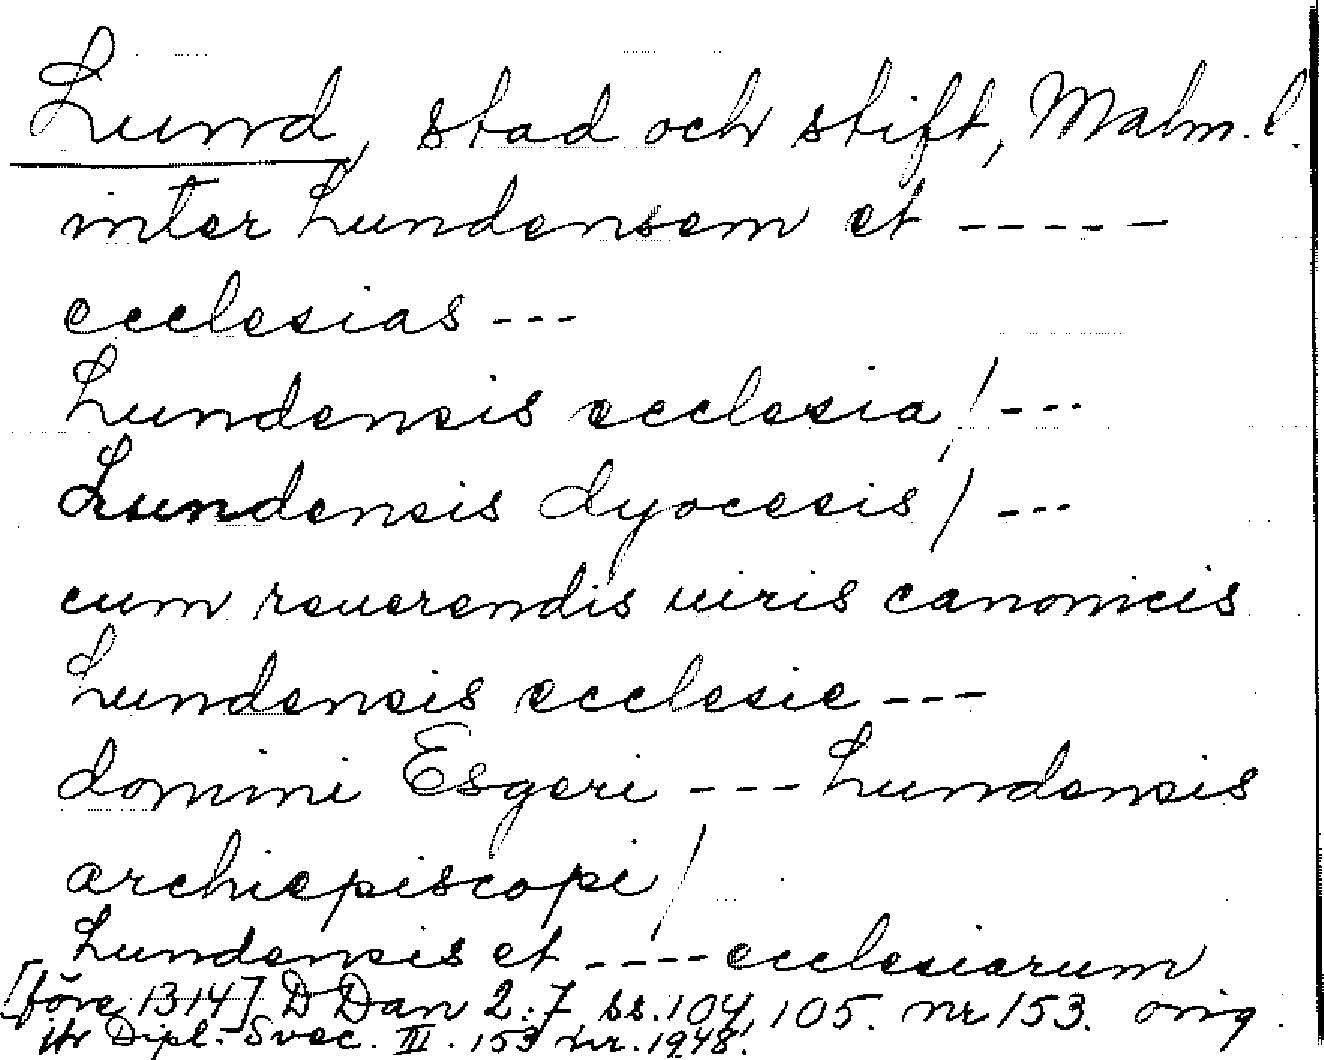 Lund, stad och stift, Malm. l.
inter Lundensem et -----
ecclesias ---
Lundensis ecclesia/ ---
Lundensis dyocesis/ ---
cum reuerendis uiris canonicis
Lundensis ecclesie ---
domini Esgeri --- Lundensis
archiepiscopi/
Lundensis et ---- ecclesiarum
[före 1314] D Dan 2:7 ss. 104, 105. nr 153. orig.
Dipl. Svec. III. 153 nr. 1948.